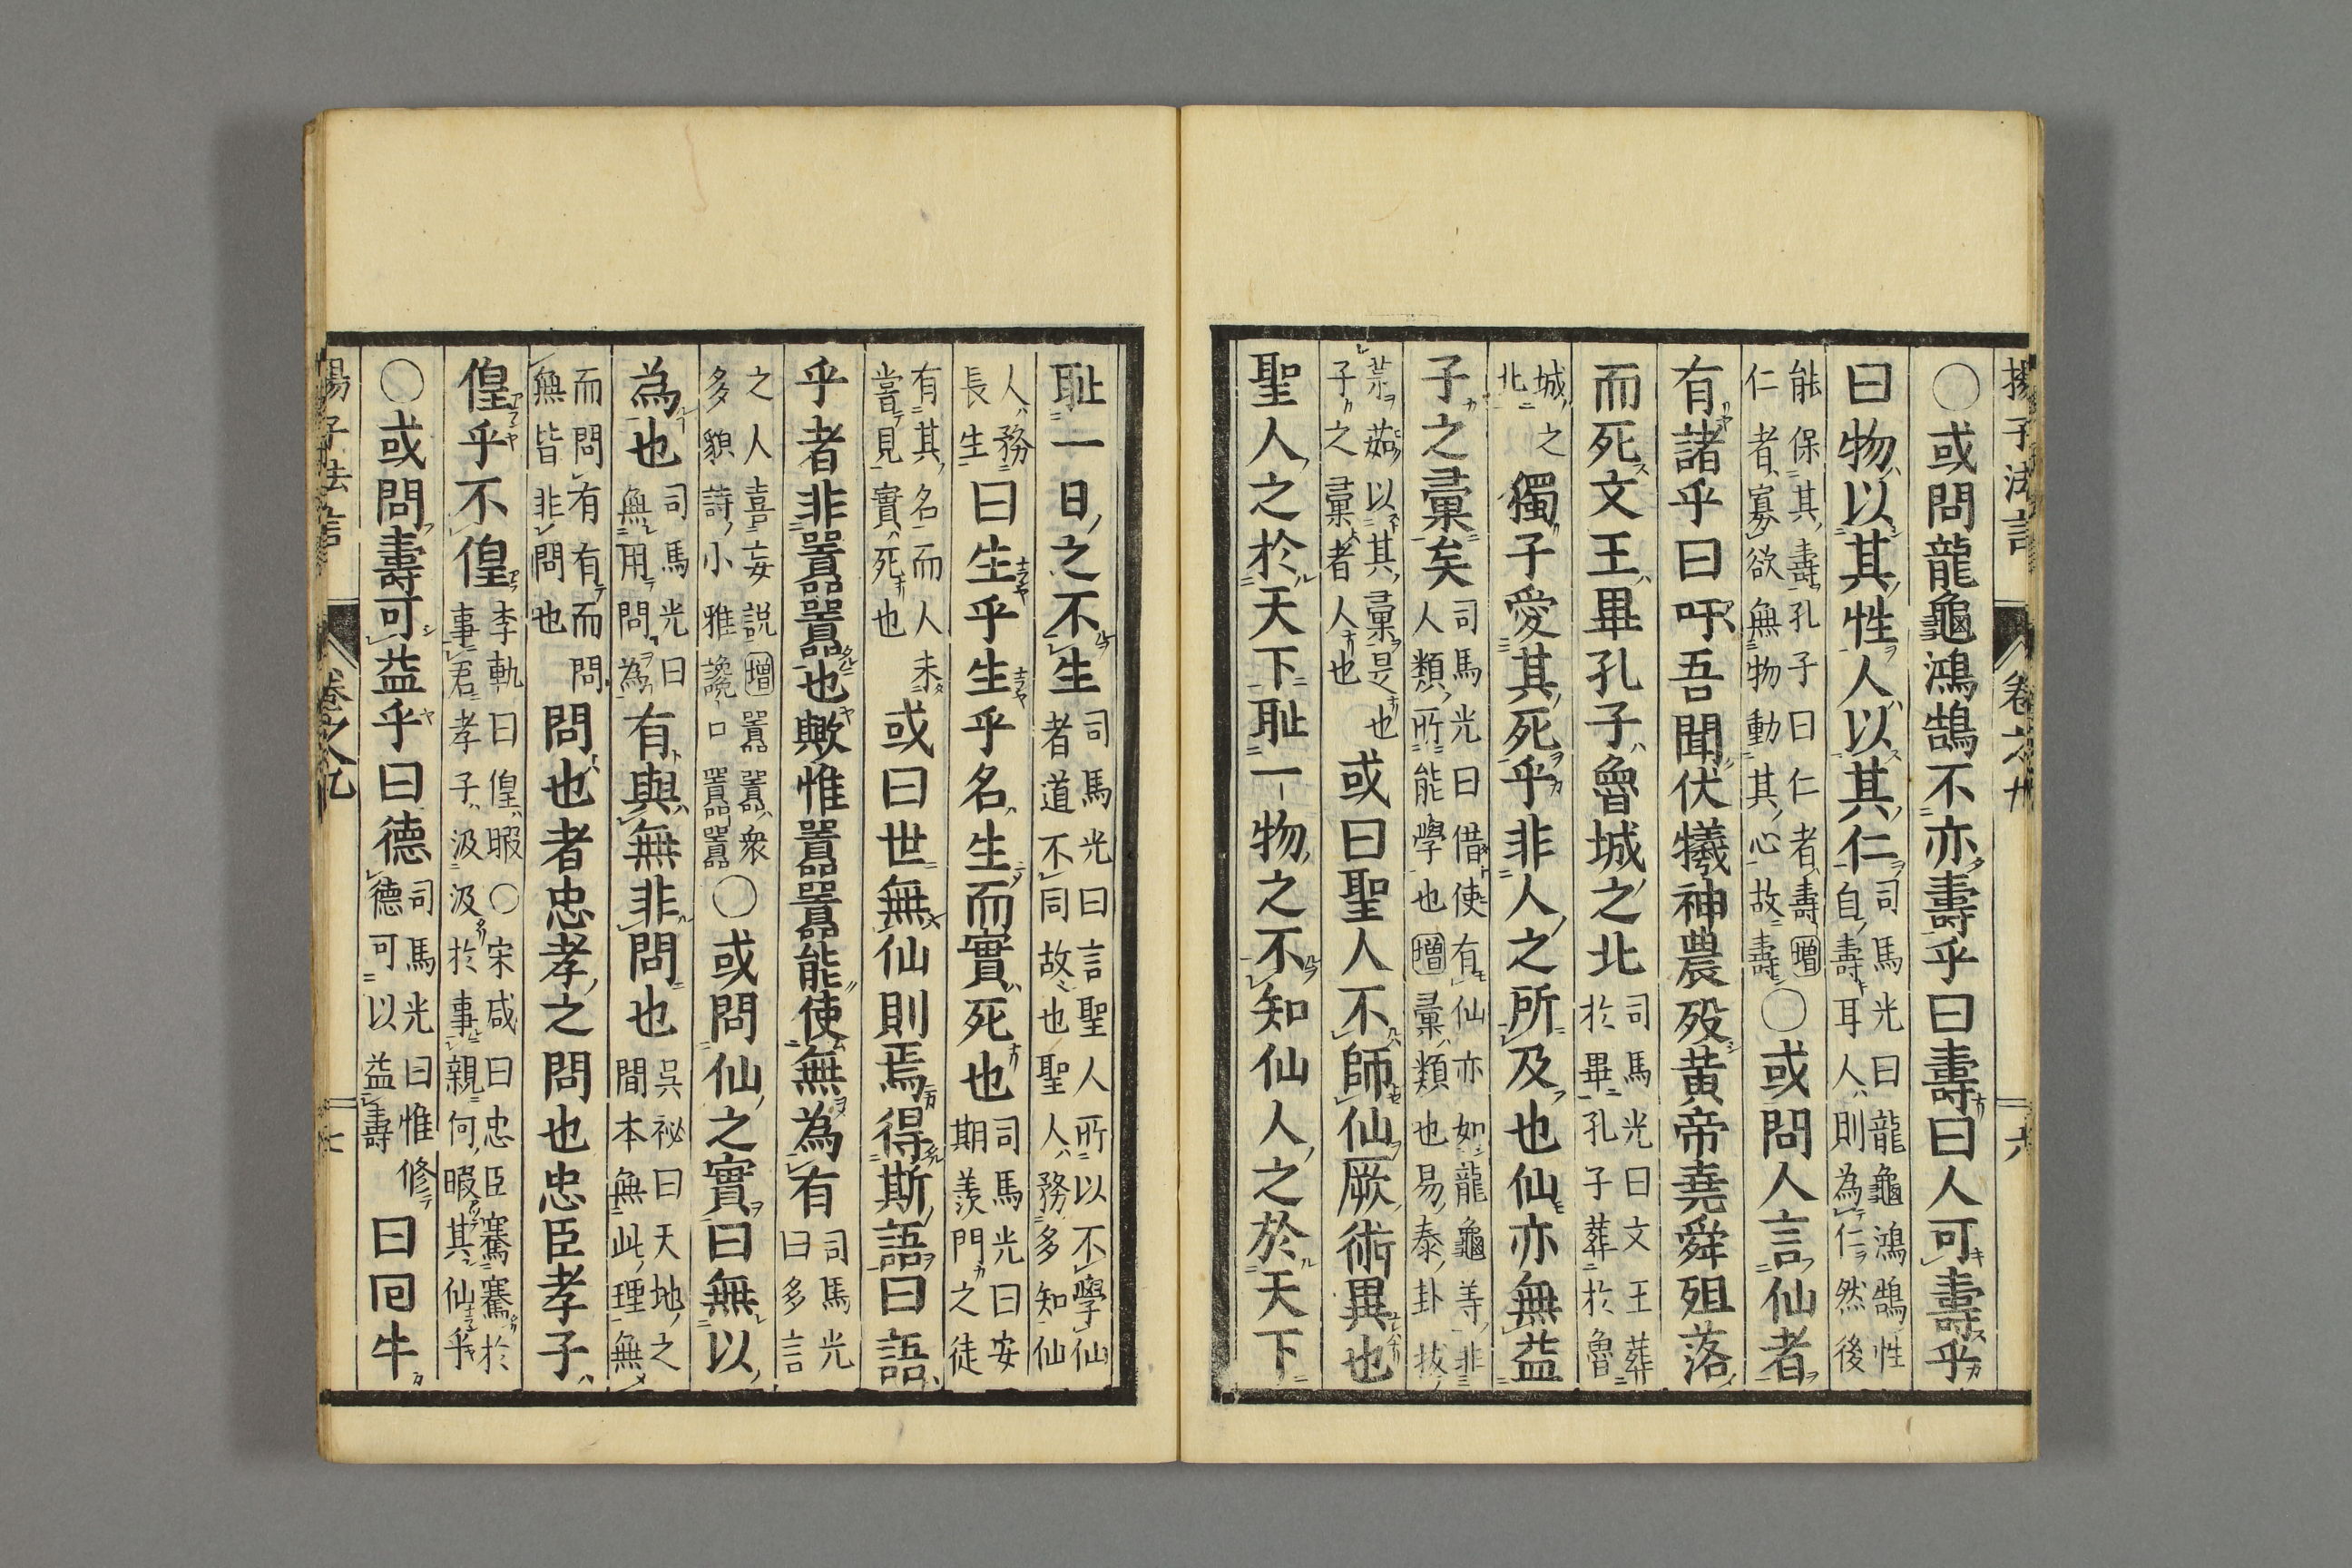 揚子法言 卷之九 六
○或問龍龜鴻鵠不亦壽乎曰壽曰人可壽乎
曰物以其性人以其仁 司馬光曰龍龜鴻鵠性 自壽耳人則為仁然後
能保其壽孔子曰仁者壽增 仁者寡欲無物動其心故壽 ○或問人言仙者
有諸乎曰吁吾聞伏犧神農歿黄帝堯舜殂落
而死文王畢孔子魯城之北 司馬光曰文王葬 於畢孔子葬於魯
城之 北 獨子愛其死乎非人之所及也仙亦無益
子之彙矣 司馬光曰借使有仙亦如龍龜等非 人類所能學也增彙類也易泰卦拔
茅茹以其彙是也 子之彙者人也 或曰聖人不師仙厥術異也
聖人之於天下耻一物之不知仙人之於天下
耻一日之不生 司馬光曰言聖人所以不學仙 者道不同故也聖人務多知仙
人務 長生 曰生乎生乎名生而實死也 司馬光曰安 期羨門之徒
有其名而人未 嘗見實死也 或曰世無仙則焉得斯語曰語
乎者非囂囂也歟惟囂囂能使無為有 司馬光 曰多言
之人喜妄説增囂囂衆 多貌詩小雅讒口囂囂 ○或問仙之實曰無以
為也 司馬光曰 無用問為 有與無非問也 吳祕曰天地之 間本無此理無
而問有有而問 無皆非問也 問也者忠孝之問也忠臣孝子
偟乎不偟 李軌曰偟暇○宋咸曰忠臣騫騫於 事君孝子汲汲於事親何暇其仙乎
○或問壽可益乎曰德 司馬光曰惟修 德可以益壽 曰回牛
揚子法言 卷之九 七